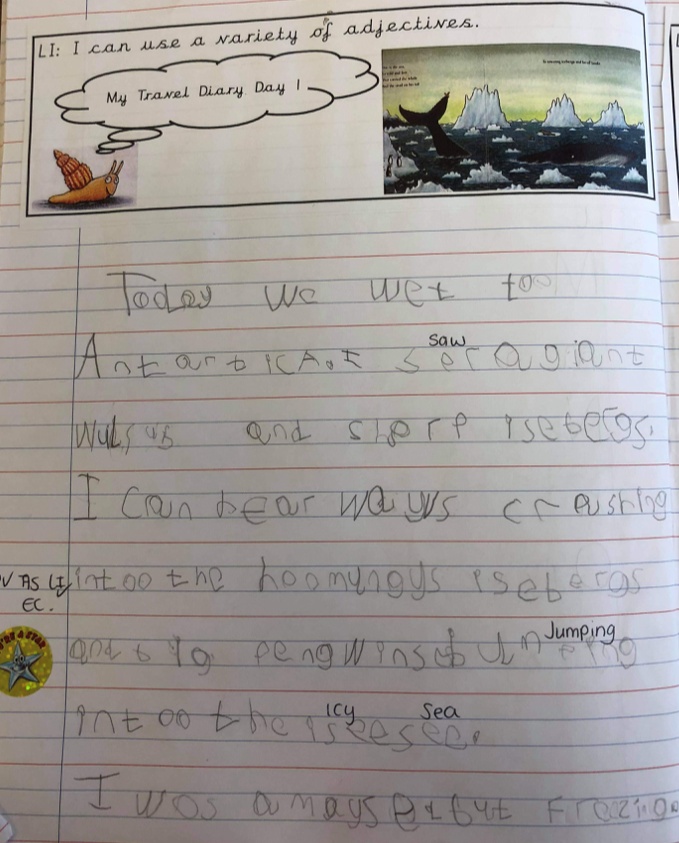 LI: I can use a variety of adjectives.
My Travel Diary Day 1
Today we wet too
Antartica. I ser a giant
saw
and sharp isebergs.
I can hear wayvs crashing
V AS LI intoo the hoomungys isebergs
EC.
and big pengwins
Jumping
intoo the isee see.
icy sea
I was amaysed but freezing